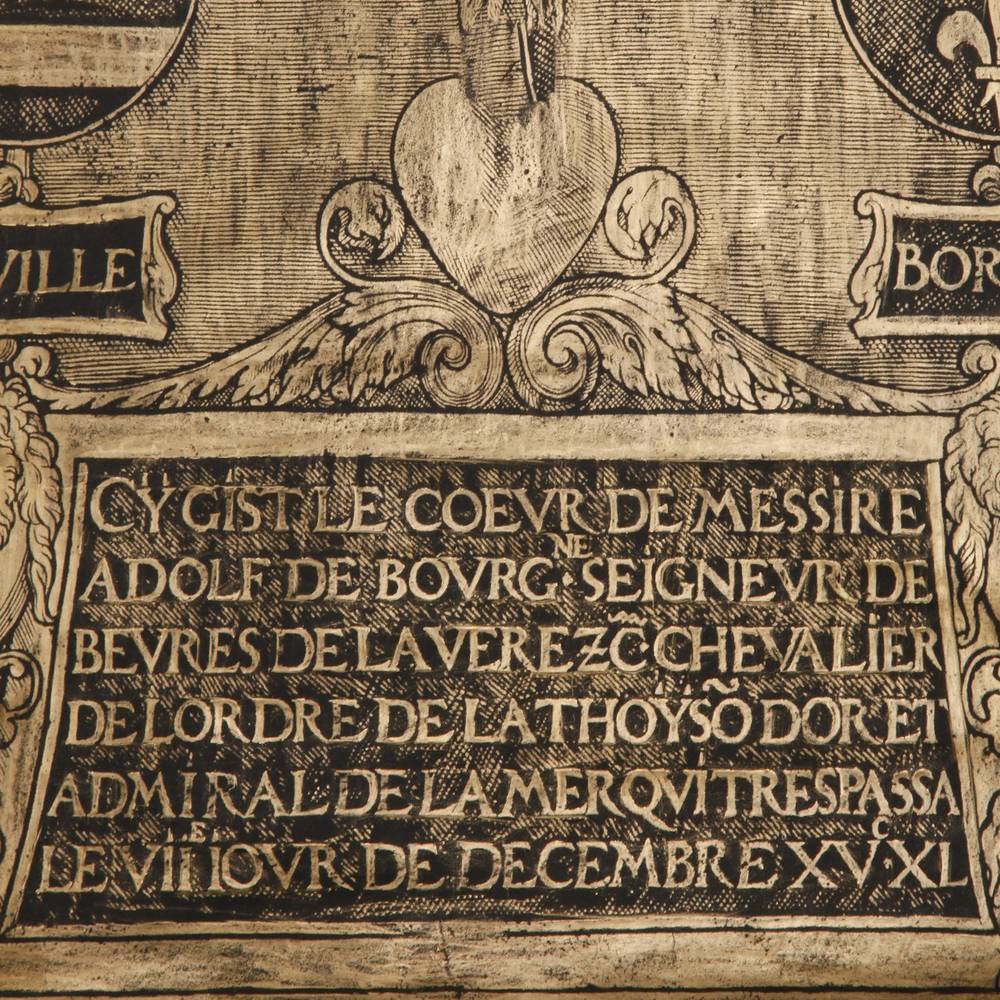 VILLE
BOR
CY GIST LE COEVR DE MESSIRE
ADOLF DE BOVRG·NE SEIGNEVR DE
BEVRES DE LA VERE ZC̃ CHEVALIER
DE LORDRE DE LA THOYSÕ DOR ET
ADMIRAL DE LA MER QVI TRESPASSA
LE VIIE IOVR DE DECEMBRE XVC·XL